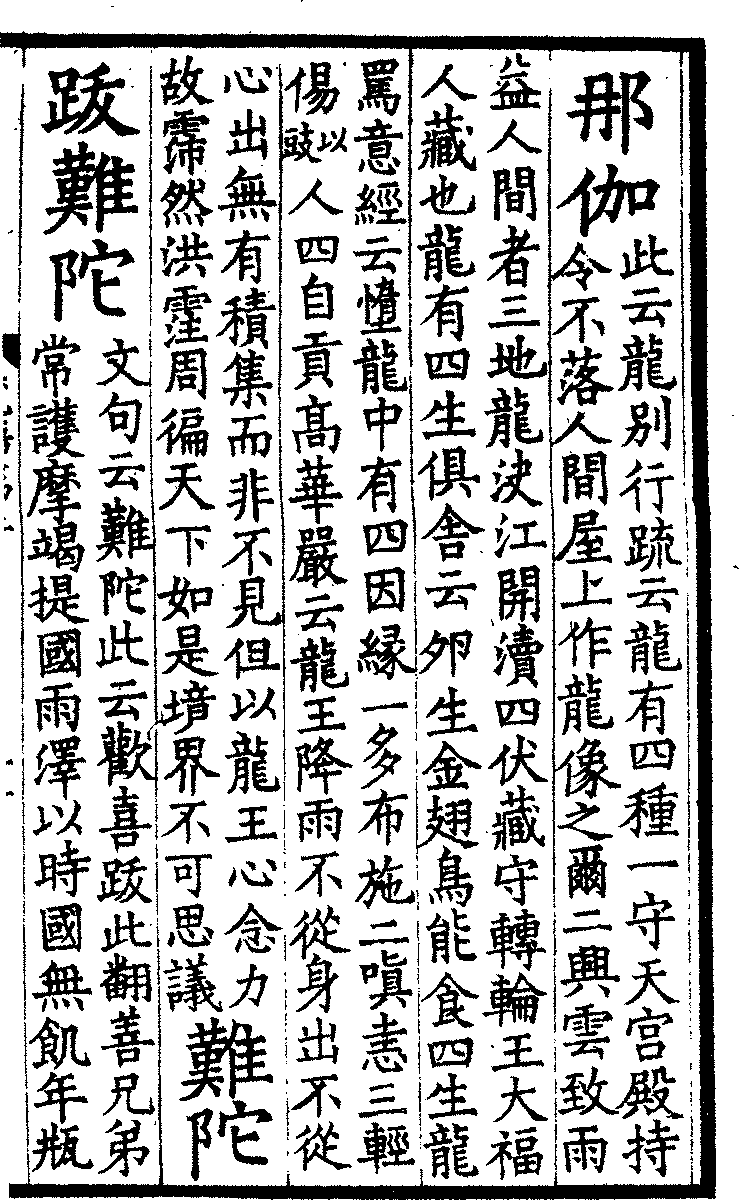 那伽
此云龍別行疏云龍有四種一守天宮殿持
令不落人間屋上作龍像之爾二興雲致雨
益人間者三地龍決江開瀆四伏藏守轉輪王大福
人藏也龍有四生俱舍云卵生金翅鳥能食四生龍
罵意經云墮龍中有四因緣一多布施二嗔恚三輕
㑥以豉人四自貢高華嚴云龍王降雨不從身出不從
心出無有積集而非不見但以龍王心念力
故霈然洪霔周徧天下如是境界不可思議
難陀
跋難陀
文句云難陀此云歡喜跋此翻善兄弟
常護摩竭提國雨澤以時國無飢年瓶